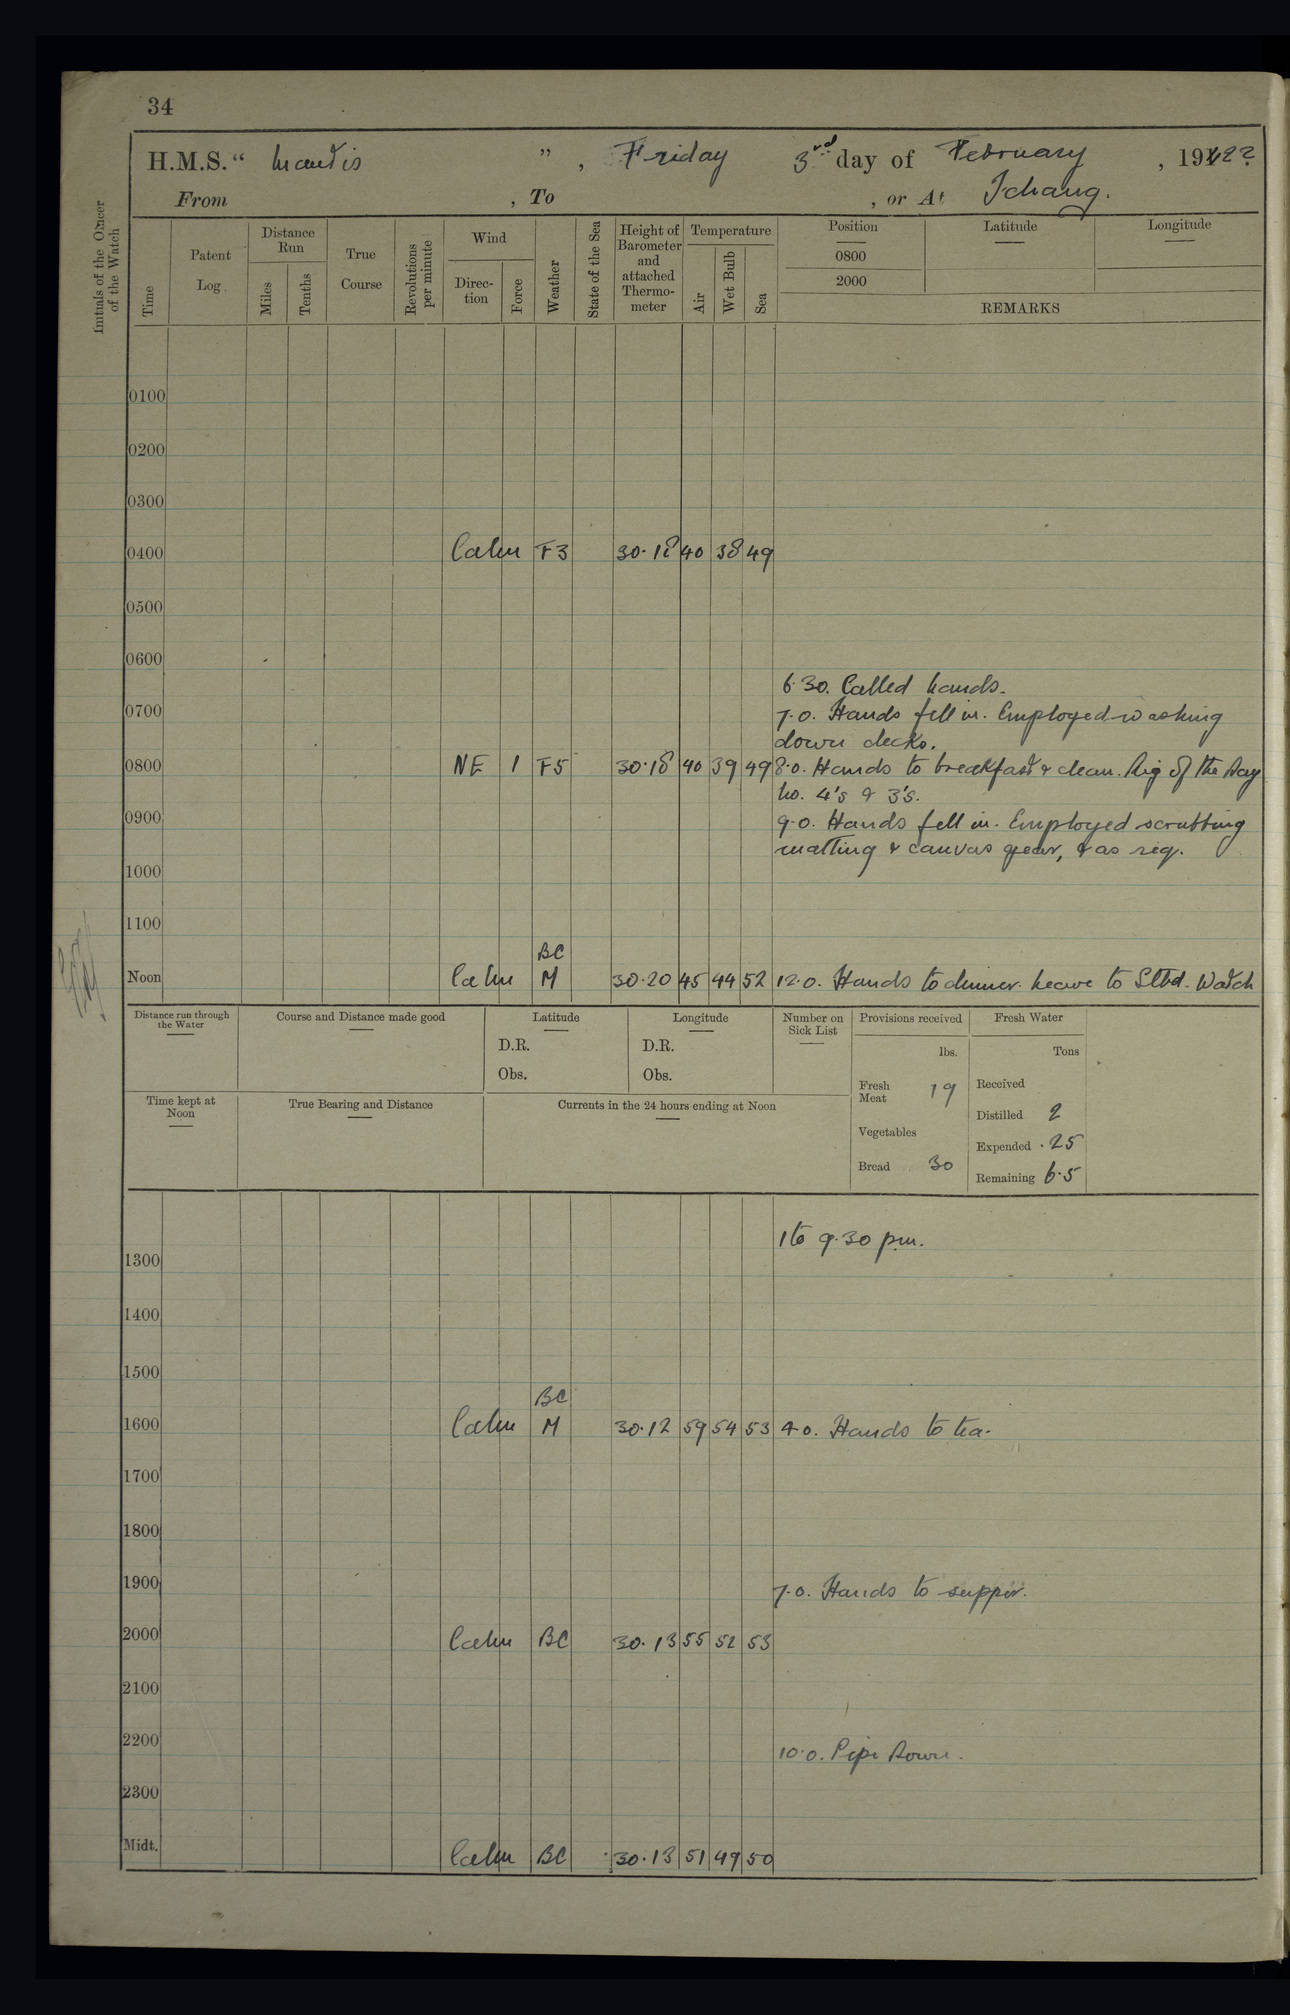 34
H.M.S. " Mantis " , Friday 3rd day of February , 1922
From , To , or At Ichang.
Initials of the Officer of the Watch
Time
Patent Log
Distance Run
Miles
Tenths
True Course
Revolutions per minute
Wind
Direction
Force
Weather
State of the Sea
Height of Barometer and attached Thermometer
Temperature
Air
Wet Bulb
Sea
Position
0800
2000
Latitude
Longitude
REMARKS
0100
0200
0300
0400 Calm F3 30.18 40 38 49
0500
0600
6.30. Called hands.
0700 7.0. Hands fell in. Employed washing
down decks.
0800 NE 1 F5 30.18 40 39 49 8.0. Hands to breakfast & clean. Rig of the Day
No. 4's & 3's.
0900 9.0. Hands fell in. Employed scrubbing
matting & canvas gear, & as req.
1000
1100
BC
Noon Calm M 30.20 45 44 52 12.0. Hands to dinner. Leave to Stbd. Watch
Distance run through the Water
Course and Distance made good
Latitude
D.R.
Obs.
Longitude
D.R.
Obs.
Number on Sick List
Provisions received
lbs.
Fresh Meat 19
Vegetables
Bread 30
Fresh Water
Tons
Received
Distilled 2
Expended .25
Remaining 6.5
Time kept at Noon
True Bearing and Distance
Currents in the 24 hours ending at Noon
1 to 9.30 pm.
1300
1400
1500
BC
1600 Calm M 30.12 59 54 53 4.0. Hands to tea.
1700
1800
1900 7.0. Hands to supper.
2000 Calm BC 30.13 55 52 53
2100
2200 10.0. Pipe Down.
2300
Midt. Calm BC 30.13 51 49 50